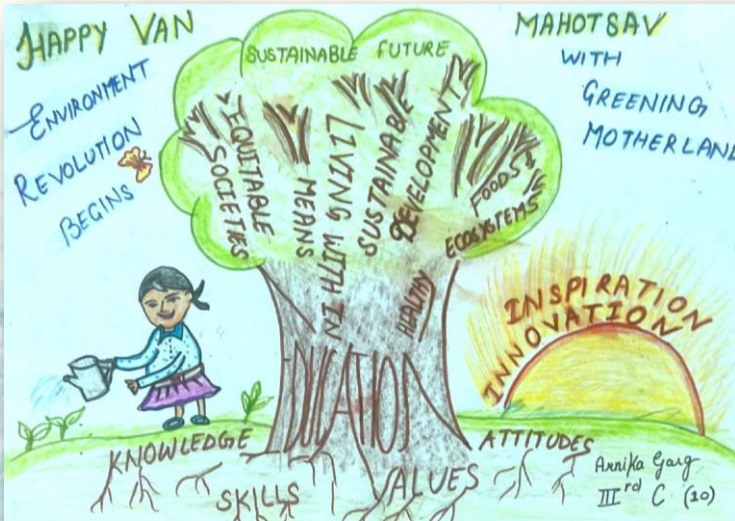 HAPPY VAN
MAHOTSAV
WITH
GREENING
MOTHERLAND
ENVIRONMENT
REVOLUTION
BEGINS
SUSTAINABLE FUTURE
EQUITABLE
SOCIETIES
LIVING WITH IN
MEANS
SUSTAINABLE
DEVELOPMENT
FOODS &
ECOSYSTEMS
HEALTHY
INSPIRATION
INNOVATION
EDUCATION
KNOWLEDGE
ATTITUDES
SKILLS
VALUES
Annika Garg
IIIrd C (10)